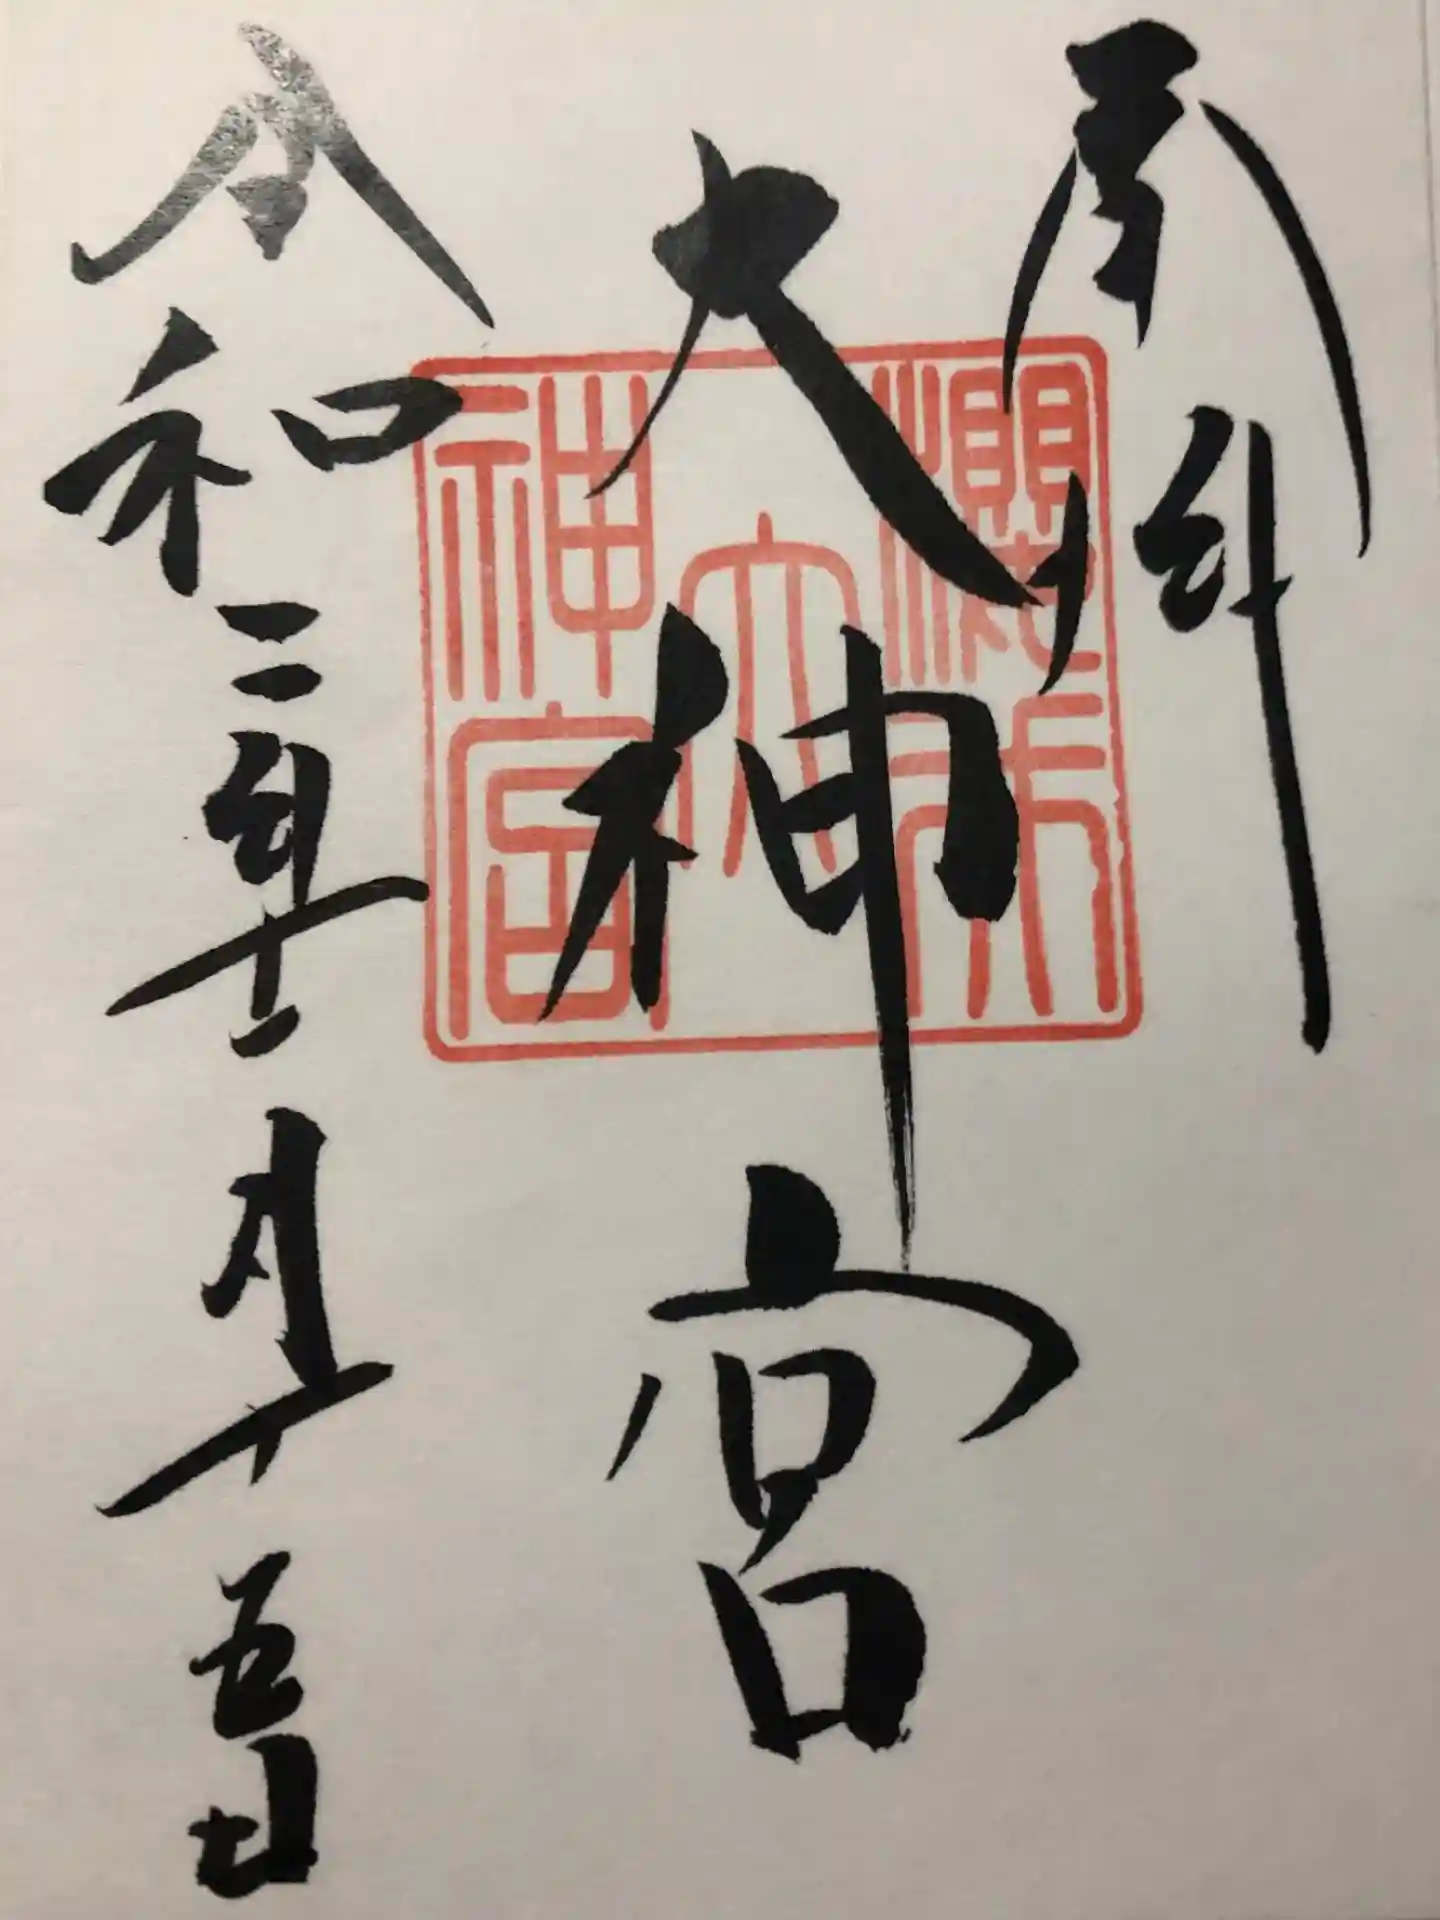 奉拝
大神宮
令和二年十一月十五日
櫻
大
神宮